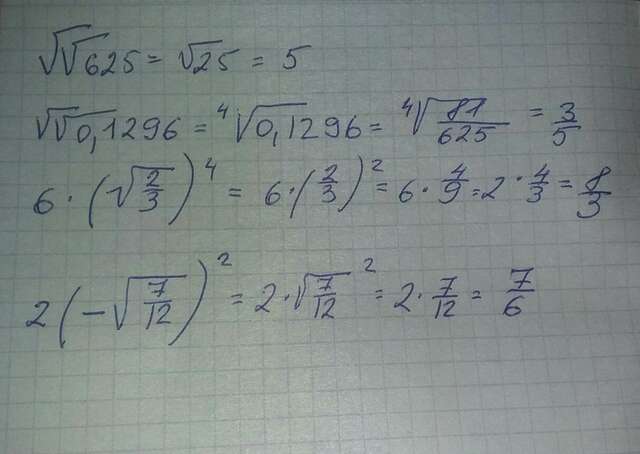 √√625 = √25 = 5
√√0,1296 = ⁴√0,1296 = ⁴√(81/625) = 3/5
6 · (√(2/3))⁴ = 6 · (2/3)² = 6 · 4/9 = 2 · 4/3 = 8/3
2(−√(7/12))² = 2 · √(7/12)² = 2 · 7/12 = 7/6